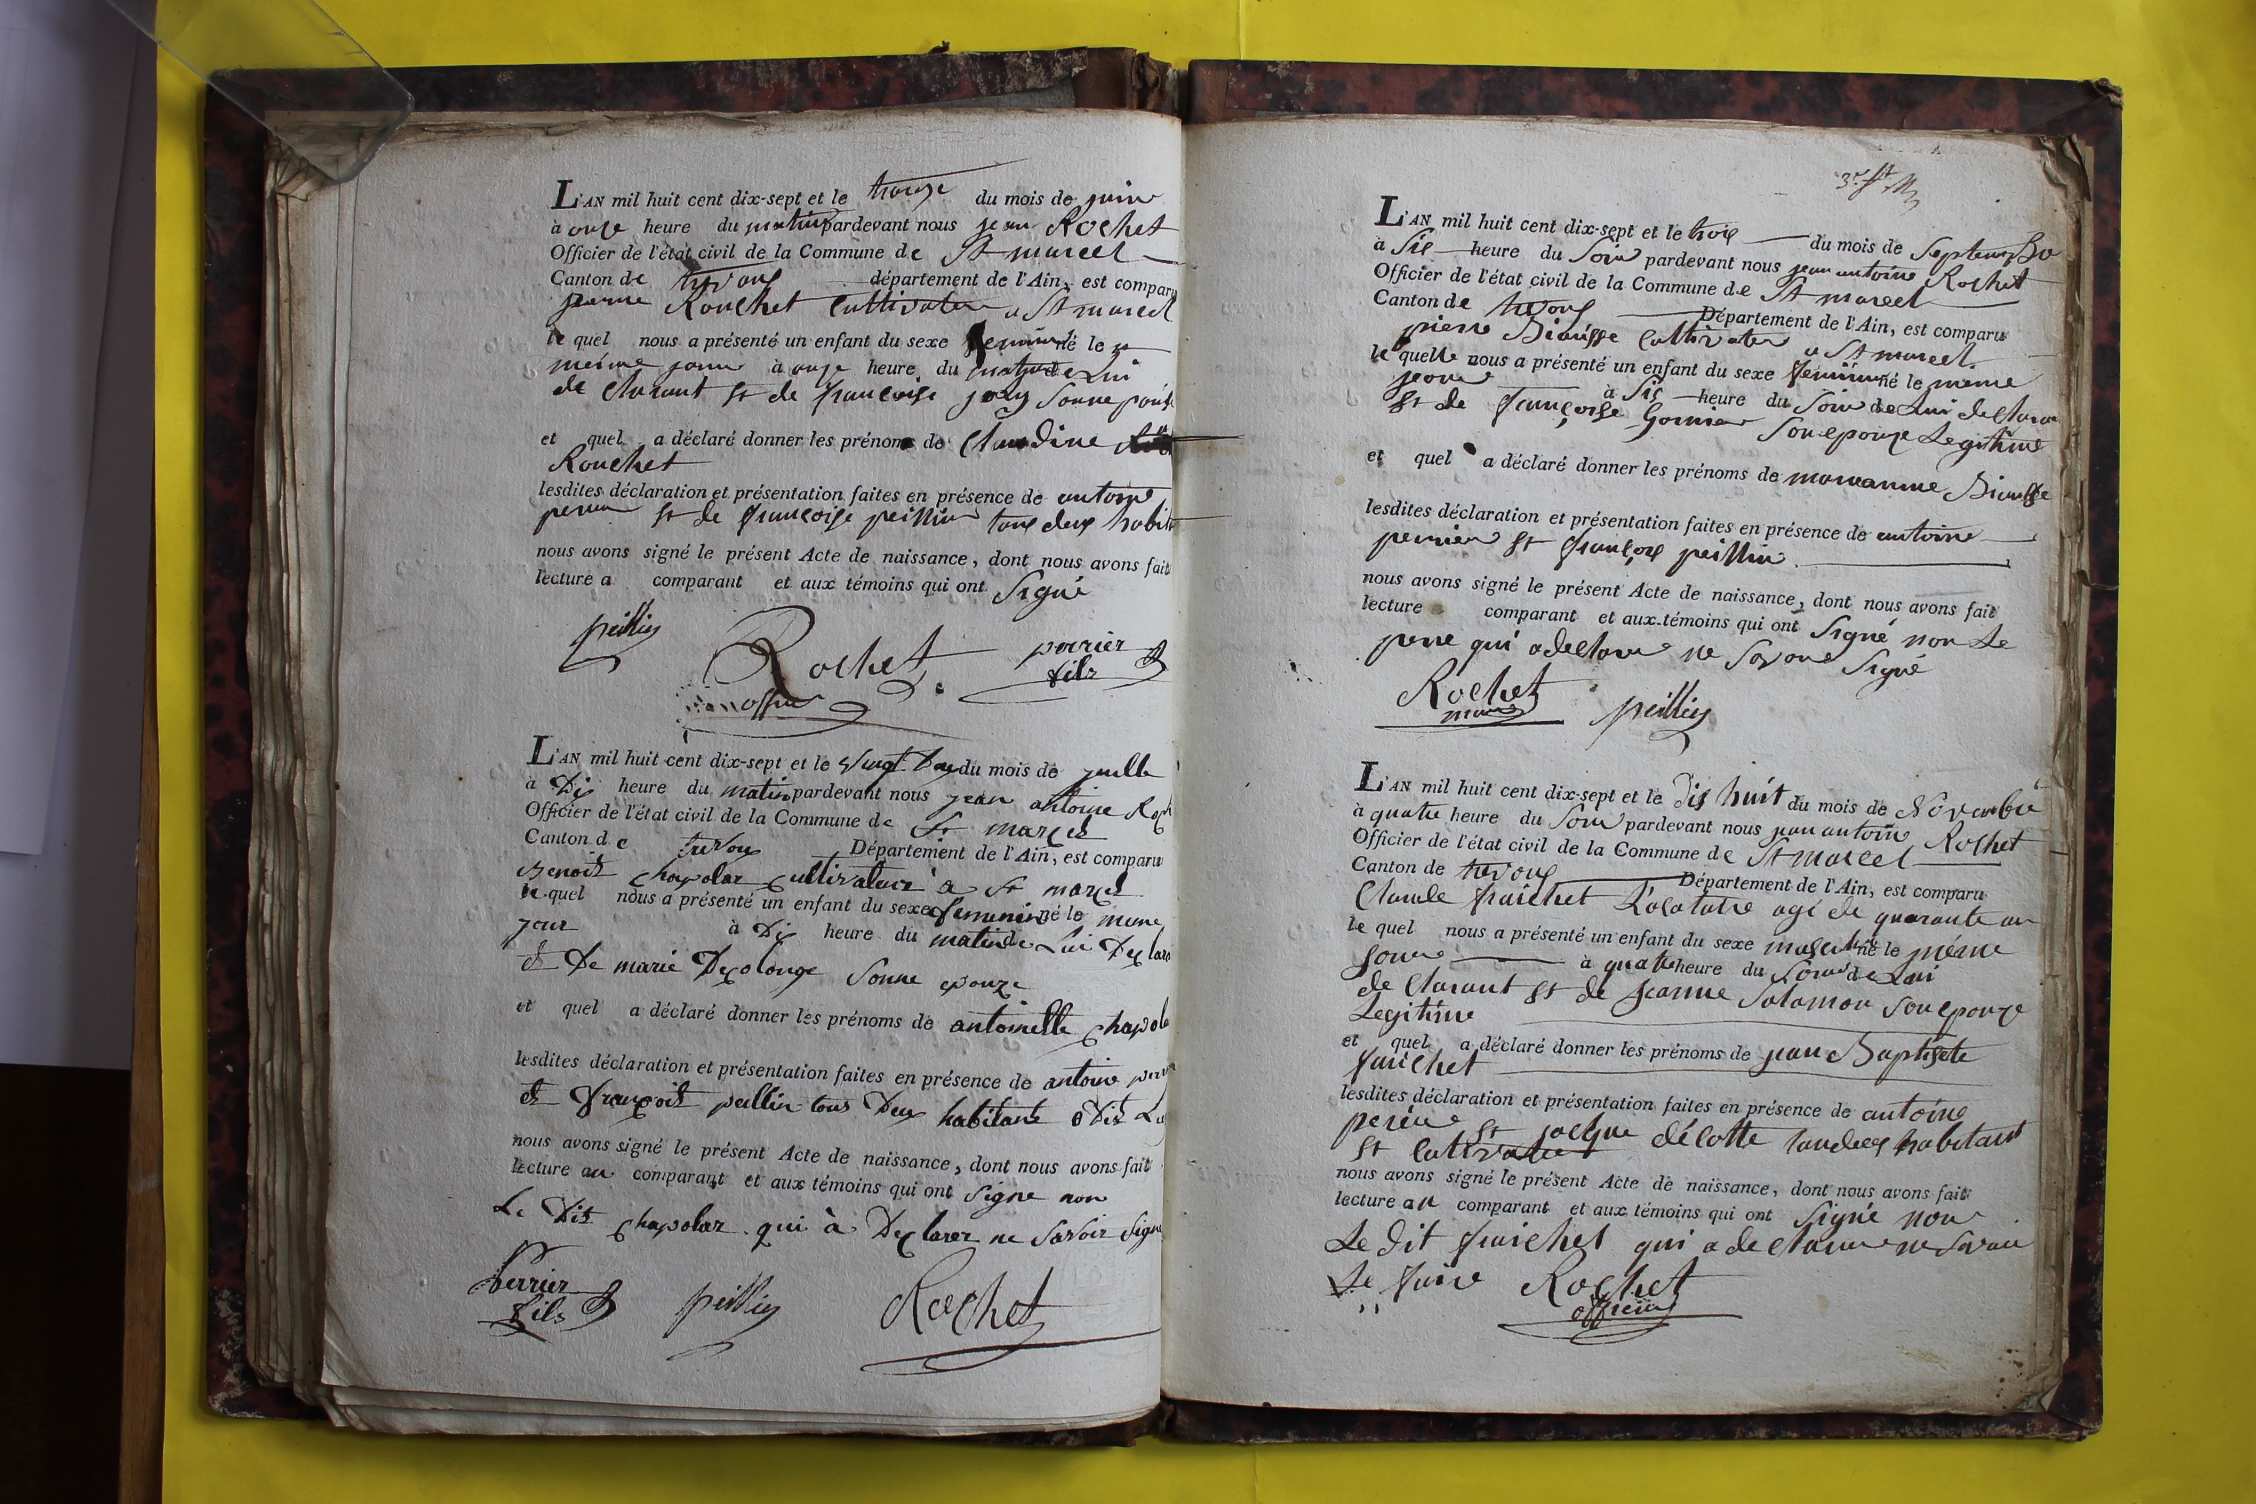 L'AN mil huit cent dix-sept et le treize du mois de juin
à onze heure du matin pardevant nous jean Rochet
Officier de l'état civil de la Commune de St marcel
Canton de trevoux département de l'Ain, est comparu
pierre Rouchet Cultivateur a St marcel
le quel nous a présenté un enfant du sexe feminin né le
même jour à onze heure du matin de Lui
de Clarant et de françoise joly Sonne
et quel a déclaré donner les prénoms de Claudine
Rouchet
lesdites déclaration et présentation faites en présence de antoine
perier et de françoise peillin tous deux habit
nous avons signé le présent Acte de naissance, dont nous avons fait
lecture a comparant et aux témoins qui ont Signé
peillin
Rochet
perrier
fils
L'AN mil huit cent dix-sept et le vingt du mois de juillet
à Dix heure du matin pardevant nous jean antoine Roch
Officier de l'état civil de la Commune de St marcel
Canton de trevoux Département de l'Ain, est comparu
Benoit Chapolar Cultivateur a St marcel
le quel nous a présenté un enfant du sexe femenin né le meme
jour à Dix heure du matin de Lui Declara
et De marie Decolonge Sonne epouze
et quel a déclaré donner les prénoms de antoinette Chapola
lesdites déclaration et présentation faites en présence de antoine
et françois peillin tous Deux habitant
nous avons signé le présent Acte de naissance, dont nous avons fait
lecture au comparant et aux témoins qui ont Signe non
Le Dit Chapolar qui à Declarer ne Savoir Signe
Perrier
fils
peillin
Rochet
L'AN mil huit cent dix-sept et le trois du mois de Septembre
à Sis heure du Soir pardevant nous jean antoine Rochet
Officier de l'état civil de la Commune de St marcel
Canton de trevoux Département de l'Ain, est comparu
pierre Biausse Cultivateur a St marcel
le quelle nous a présenté un enfant du sexe feminin né le meme
jour à Sis heure du Soir de Lui de Claran
et de françoise Gornier Son epouze Legitime
et quel a déclaré donner les prénoms de marianne Biausse
lesdites déclaration et présentation faites en présence de antoine
perrier et françois peillin
nous avons signé le présent Acte de naissance, dont nous avons fait
lecture comparant et aux témoins qui ont Signé non Le
pere qui a declare ne Savoir Signé
Rochet
maire
peillin
L'AN mil huit cent dix-sept et le Dis huit du mois de Novembre
à quatre heure du Soir pardevant nous jean antoine Rochet
Officier de l'état civil de la Commune de St marcel
Canton de trevoux Département de l'Ain, est comparu
Claude fraichet Locataire agé de quarante an
le quel nous a présenté un enfant du sexe masculin né le même
jour à quatre heure du Soir de Lui
de Clarant et de jeanne Salamon Son epouze
Legitime
et quel a déclaré donner les prénoms de jean Baptiste
fraichet
lesdites déclaration et présentation faites en présence de antoine
perier et jacque décotte tous deux habitant
et Cultivateur
nous avons signé le présent Acte de naissance, dont nous avons fait
lecture au comparant et aux témoins qui ont Signé non
Le dit fraichet qui a declare ne Savoir
Le faire Rochet
officier